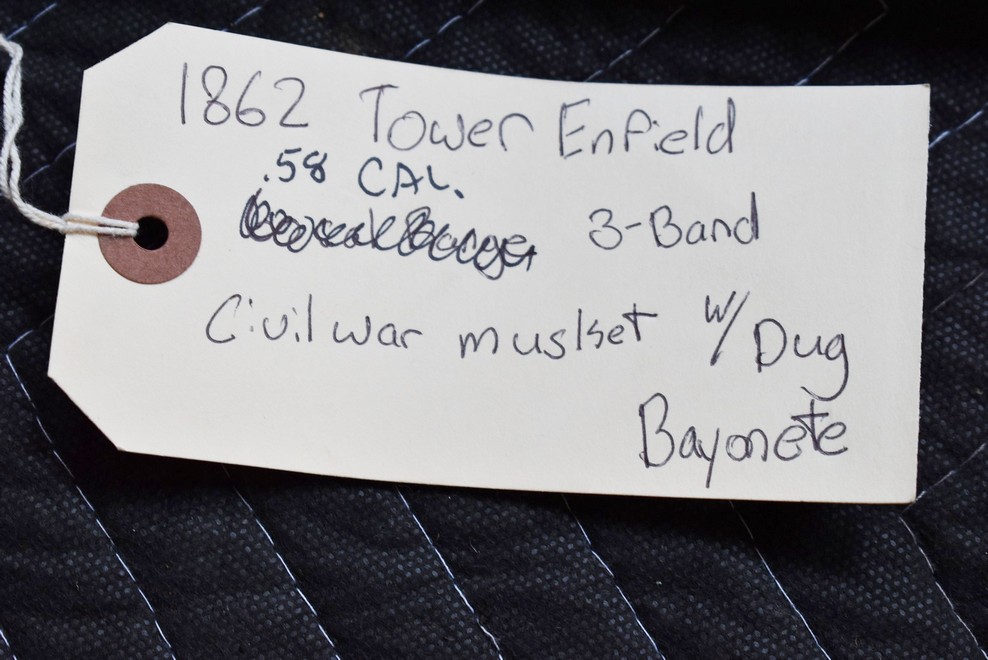 1862 Tower Enfield
.58 CAL.
3-Band
Civil war musket w/ Dug
Bayonete